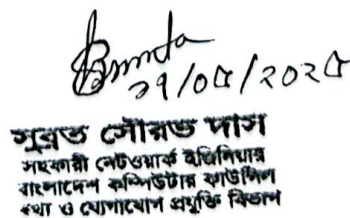 ২৯/০৫/২০২৫
সুব্রত সৌরভ দাস
সহকারী নেটওয়ার্ক ইঞ্জিনিয়ার
বাংলাদেশ কম্পিউটার কাউন্সিল
তথ্য ও যোগাযোগ প্রযুক্তি বিভাগ